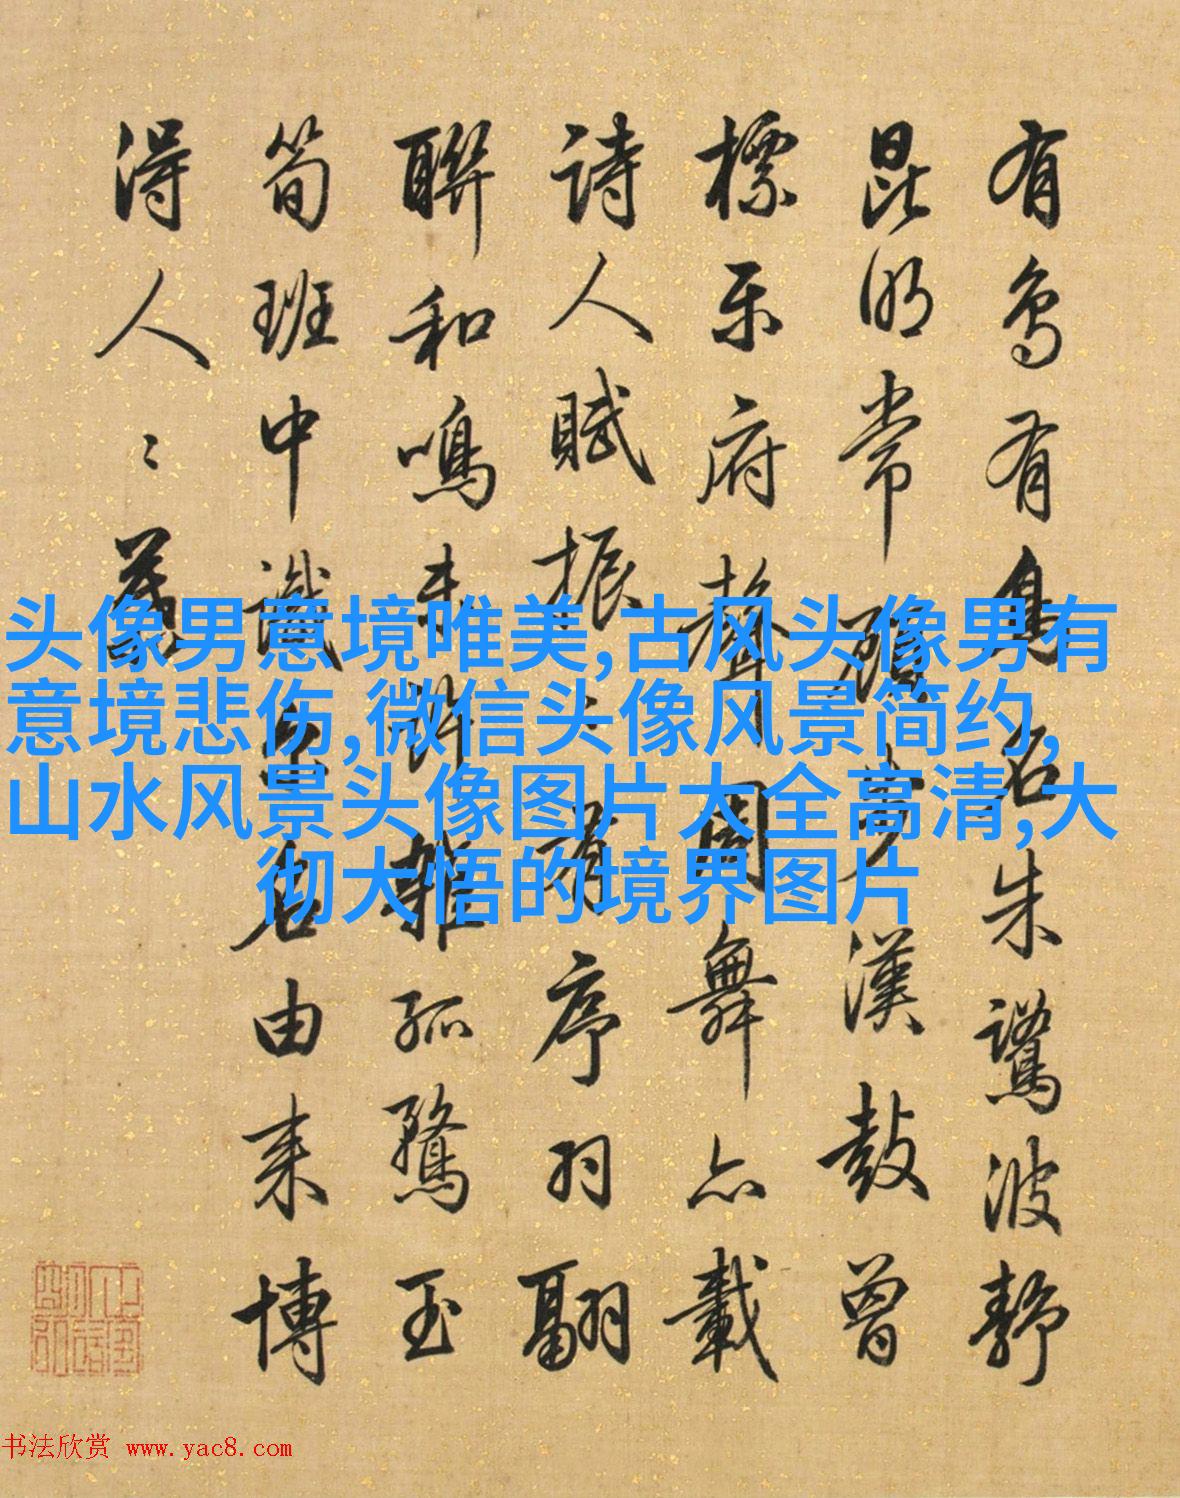 有鸟有鳥名朱鷺波静
昆明常顧步漢鼓曾
標乐府聲周舞亦載
诗人賦振有序羽翩
聯和鳴未許雜孤鶩玉
筍班中識名由来博
得人
头像男意境唯美,古风头像男有
意境悲伤,微信头像风景简约,
山水风景头像图片大全高清,大
彻大悟的境界图片
书法欣赏 www.yac8.com